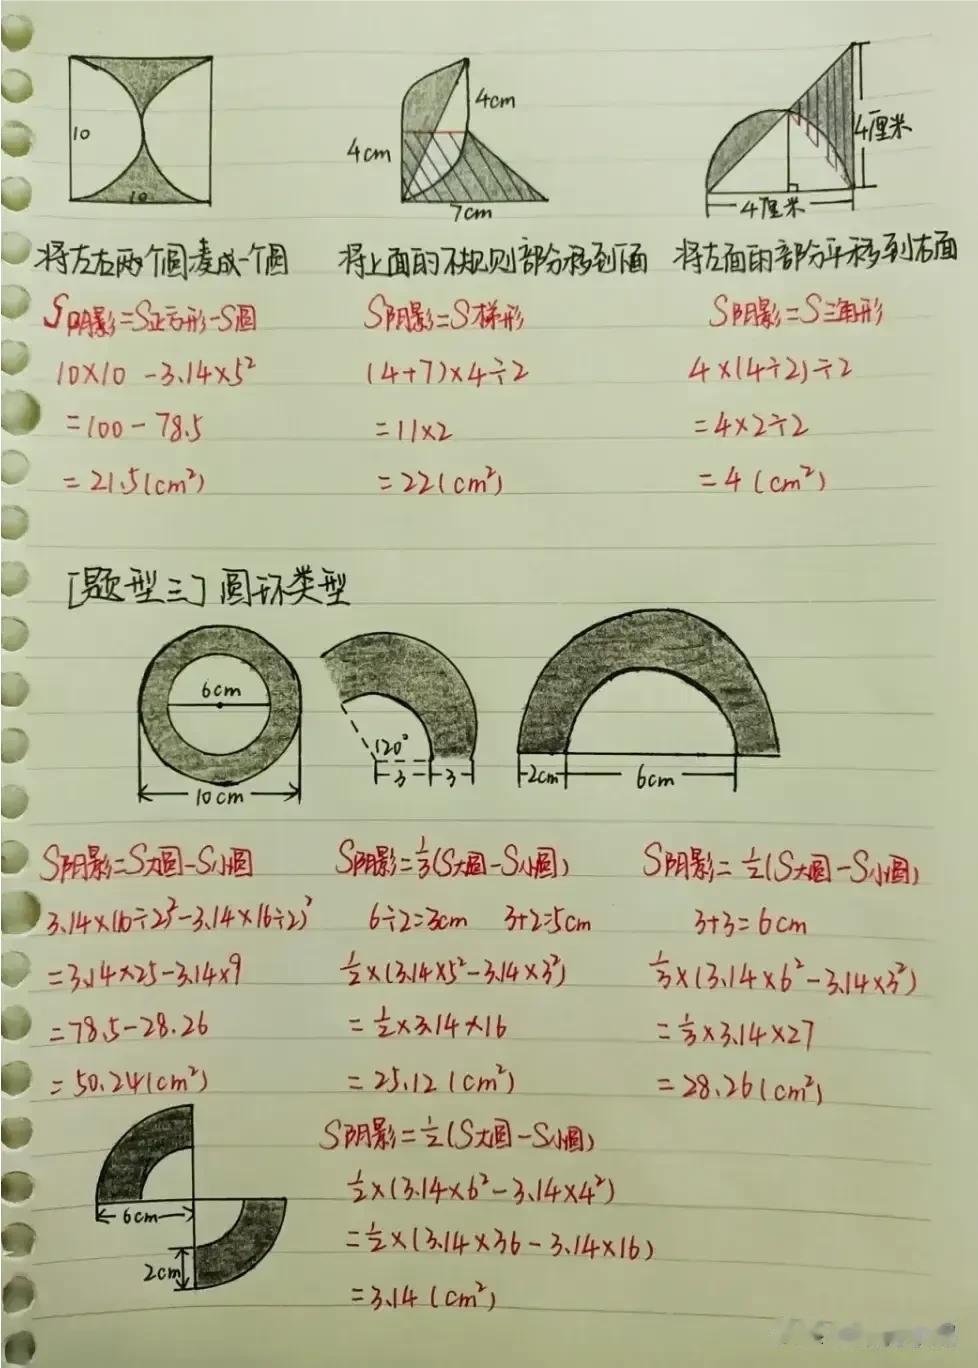 10
10
4cm
4cm
7cm
4厘米
4厘米
将左右两个圆凑成一个圆
将上面的不规则部分移到下面
将左面的部分平移到右面
S阴影=S正方形-S圆
10×10-3.14×5²
=100-78.5
=21.5(cm²)
S阴影=S梯形
(4+7)×4÷2
=11×2
=22(cm²)
S阴影=S三角形
4×(4÷2)÷2
=4×2÷2
=4(cm²)
[题型三]圆环类型
6cm
10cm
120°
3
3
2cm
6cm
S阴影=S大圆-S小圆
3.14×(10÷2)²-3.14×(6÷2)²
=3.14×25-3.14×9
=78.5-28.26
=50.24(cm²)
S阴影=⅓(S大圆-S小圆)
6÷2=3cm 3+2=5cm
½×(3.14×5²-3.14×3²)
=½×3.14×16
=25.12(cm²)
S阴影=½(S大圆-S小圆)
3+3=6cm
⅓×(3.14×6²-3.14×3²)
=⅓×3.14×27
=28.26(cm²)
6cm
2cm
S阴影=½(S大圆-S小圆)
½×(3.14×6²-3.14×4²)
=½×(3.14×36-3.14×16)
=3.14(cm²)